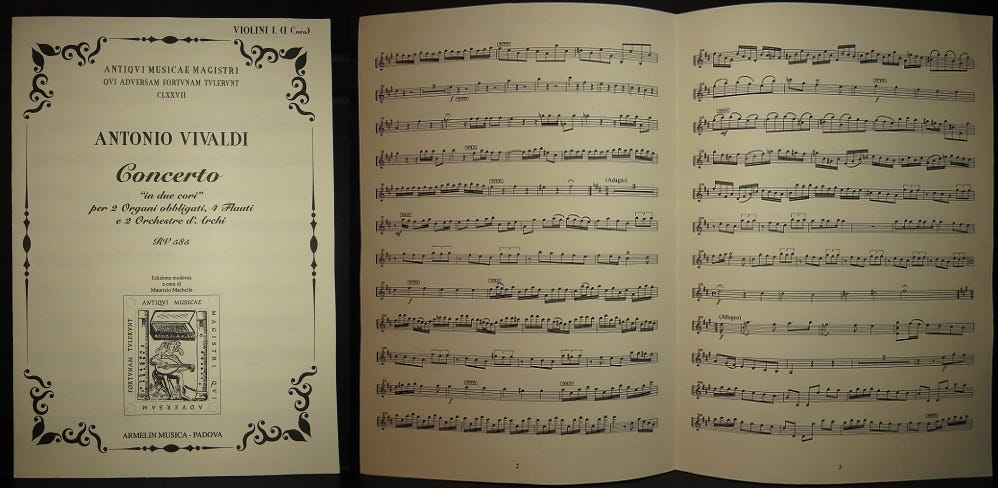 VIOLINI I. (I Coro.)
ANTIQVI MUSICAE MAGISTRI
QVI ADVERSAM FORTVNAM TVLERVNT
CLXXVII
ANTONIO VIVALDI
Concerto
"in due cori"
per 2 Organi obbligati, 4 Flauti
e 2 Orchestre d'Archi
RV 585
Edizione moderna
a cura di
Maurizio Machella
ANTIQVI MUSICAE
MAGISTRI QVI
ADVERSAM
FORTVNAM TVLERVNT
ARMELIN MUSICA - PADOVA
(Adagio)
2
(Allegro)
3